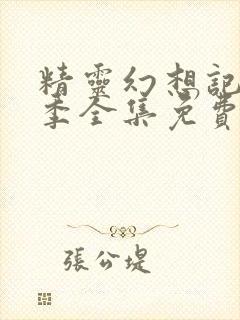 精靈幻想記
季全集免費
張公堤